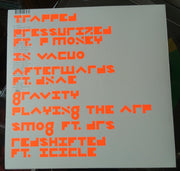 TRAPPED
PRESSURIZED
FT. P MONEY
IN VACUO
AFTERWARDS
FT. DNAE
GRAVITY
PLAYING THE ARP
SMOG FT. DRS
REDSHIFTED
FT. ICICLE